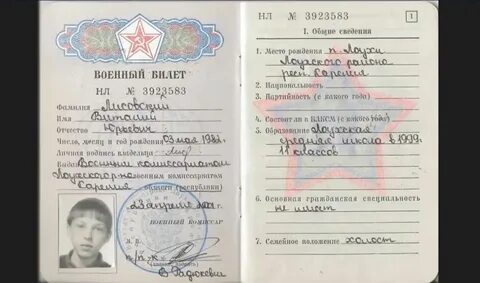 ВОЕННЫЙ БИЛЕТ
НЛ № 3923583
Фамилия Лисовский
Имя Виталий
Отчество Юрьевич
Число, месяц и год рождения 03 мая 1982
Личная подпись владельца
Выдан Военным комиссариатом
Лоухского р-на военным комиссариатом
Карелия области (республики)
23 апреля 2001 г.
ВОЕННЫЙ КОМИССАР
М. П.
п/п-к
В. Гадюкевич
НЛ № 3923583
1
I. Общие сведения
1. Место рождения п. Лоухи
Лоухского района
респ. Карелия
2. Национальность
3. Партийность (с какого года)
4. Состоит ли в ВЛКСМ (с какого года)
5. Образование Лоухская
средняя школа в 1999
11 классов
6. Основная гражданская специальность
не имеет
7. Семейное положение холост